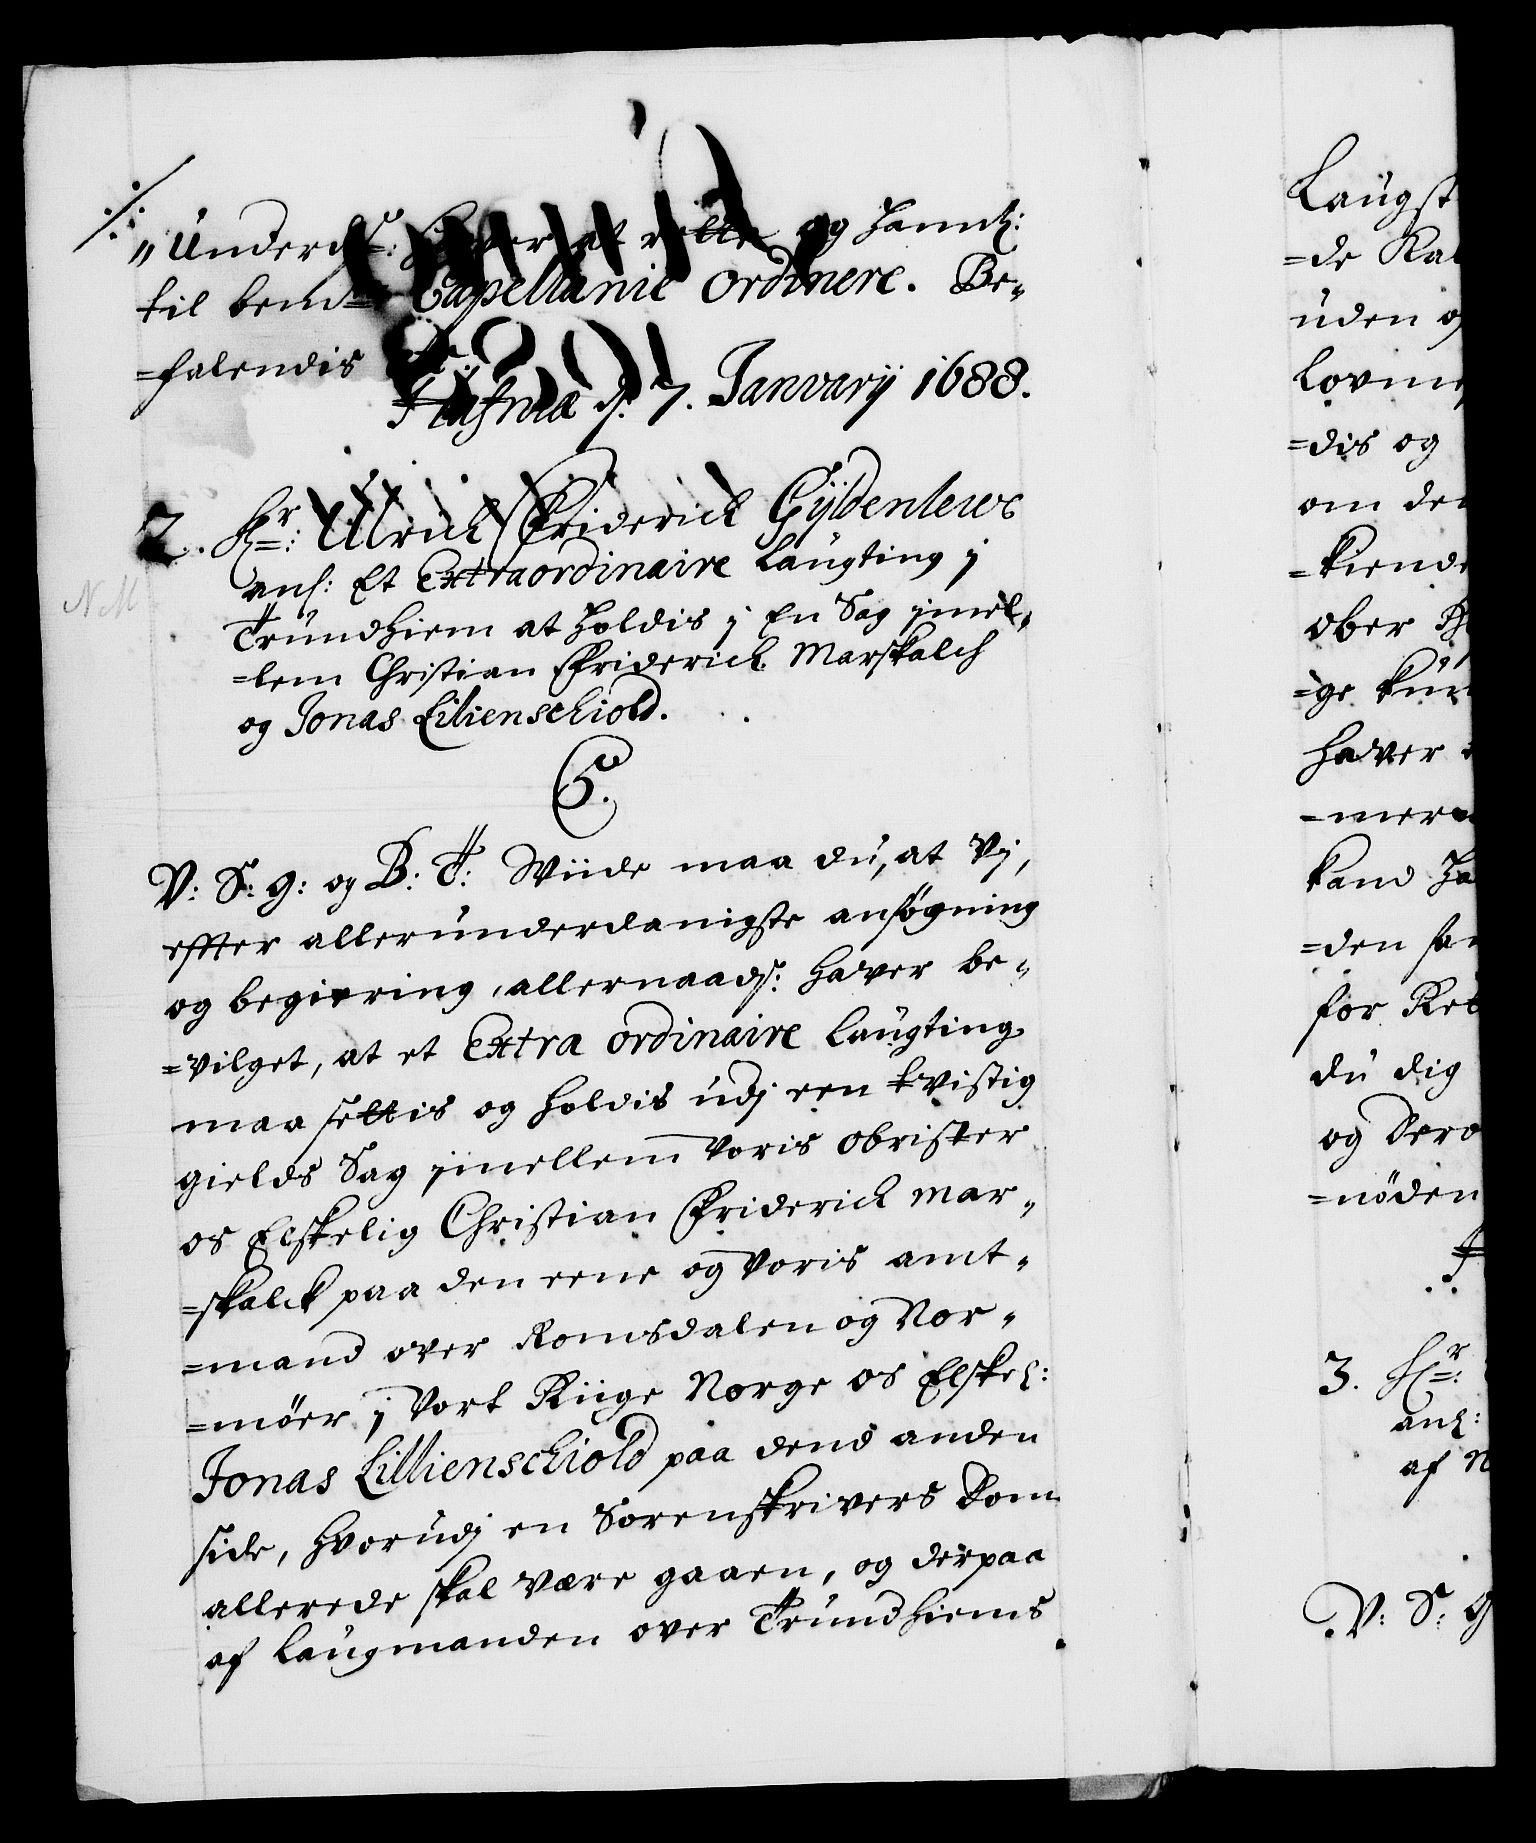 underds: haver at rette og hannl:
til bemte Capellanie ordinere. Be-
=falendis
Hafniæ d. 7. Janvarij 1688.
2. Hr: Ulrich Friderich Gyldenlewe
anl: Et Extraordinaire laugting j
Trundhiem at holdis j En Sag jmel-
=lem Christian Friderich Marskalch
og Jonas Lilienschiold.
C5.
V: S: G: og B: T: Wiide maa du, at Vj,
effter allerunderdanigste ansøgning
og begiering, allernaads: haver be-
=vilget, at et Extra ordinaire laugting
maa settis og holdis udj een tvistig
gields Sag jmellem Voris Obrister
os Elskelig Christian Friderich Mar-
=skalck paa den eene og Voris amt-
=mand over Romsdalen og Nor-
=möer j Vort Riige Norge os Elskel:
Jonas Lillienschiold paa dend anden
side, hvorudj en Sorenskrivers Dom
allerede skal være gaaen, og derpaa
af Laugmanden over Trundhiems
N M
Laugst
=de Ral
uden og
Lovme
=dis og
om der
=kiende
ober B
=ge kun
haver
=mere
kand ha
=den sam
for Ret
du dig
og Dero
=nöden
3. Hr:
anl:
af N
V: S: G